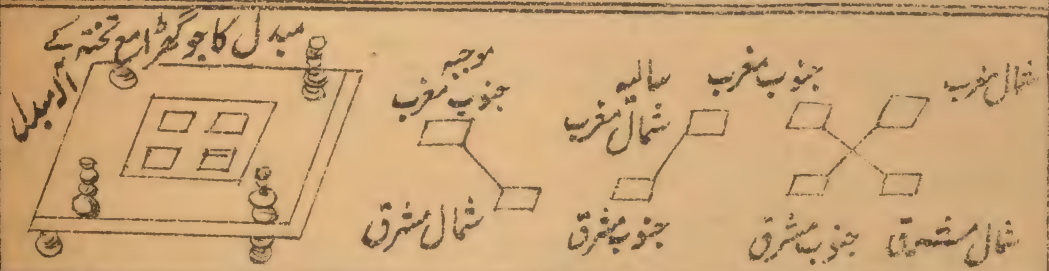 مبدل کا چوگھڑا مع تختہ کے
آلہ مبدل
موجبہ
جنوب مغرب
شمال مشرق
سالبہ
شمال مغرب
جنوب مشرق
جنوب مغرب
شمال مغرب
جنوب مشرق
شمال مشرق